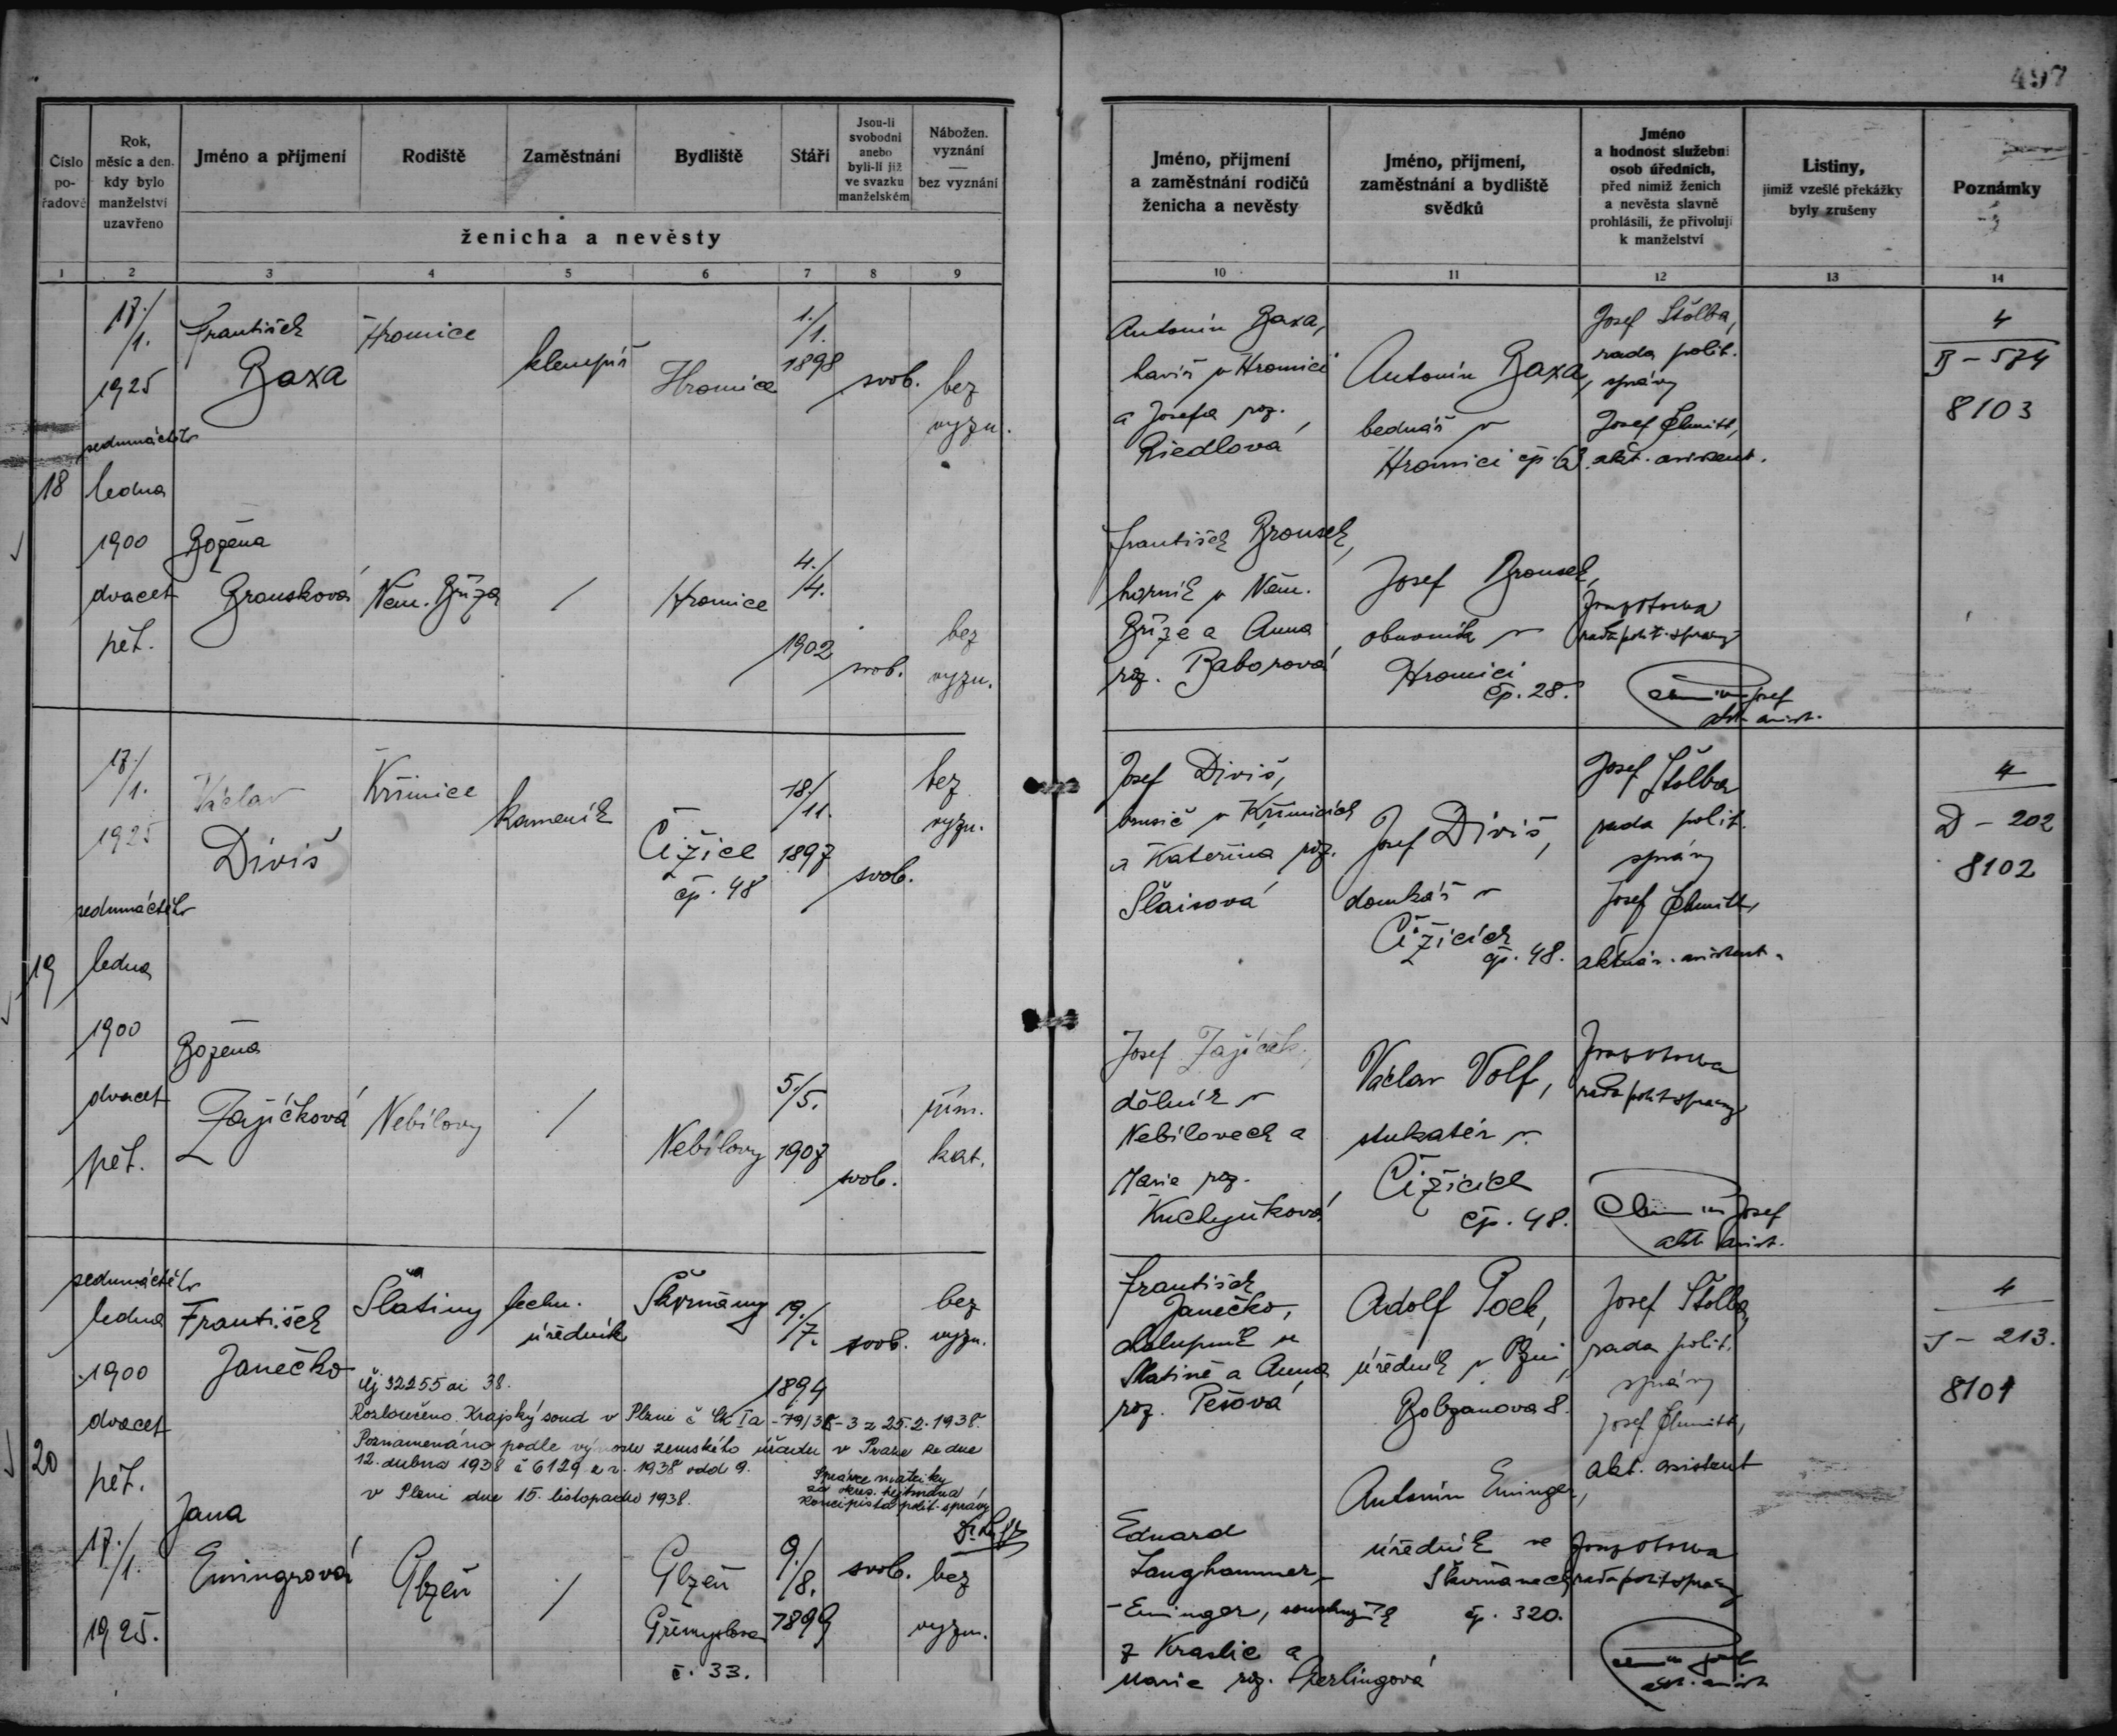 497
Číslo
po-
řadové
Rok,
měsíc a den.
kdy bylo
manželství
uzavřeno
Jméno a příjmení
Rodiště
Zaměstnání
Bydliště
Stáří
Jsou-li
svobodni
anebo
byli-li již
ve svazku
manželském
Nábožen.
vyznání
—
bez vyznání
ženicha a nevěsty
Jméno, příjmení
a zaměstnání rodičů
ženicha a nevěsty
Jméno, příjmení,
zaměstnání a bydliště
svědků
Jméno
a hodnost služební
osob úředních,
před nimiž ženich
a nevěsta slavně
prohlásili, že přivolují
k manželství
Listiny,
jimiž vzešlé překážky
byly zrušeny
Poznámky
1 2 3 4 5 6 7 8 9 10 11 12 13 14
18
17./
/1.
1925
sedmnáctého
ledna
1900
dvacet
pět.
František
Baxa
Hromice
klempíř
Hromice
1./
/1.
1898
svob.
bez
vyzn.
Antonín Baxa,
havíř v Hromici
a Josefa roz.
Riedlová
Antonín Baxa,
bednář v
Hromici čp. 63.
Josef Štolba,
rada polit.
správy
Josef
akt. asistent.
4
B - 574
8103
Božena
Brousková
Něm. Bříza
/
Hromice
4./
/4.
1902
svob.
bez
vyzn.
František Brousek,
horník v Něm.
Bříze a Anna
roz. Baborová
Josef Brousek,
obuvník v
Hromici
čp. 28.
rada polit. správy
Josef
akt. asist.
19
17./
/1.
1925
sedmnáctého
ledna
1900
dvacet
pět.
Václav
Diviš
Křimice
kameník
Čižice
čp. 48
18./
/11.
1897
svob.
bez
vyzn.
Josef Diviš,
brusič v Křimicích
a Kateřina roz.
Šlaisová
Josef Diviš,
domkář v
Čižicích
čp. 48.
Josef Štolba
rada polit.
správy
Josef
aktuár. asistent.
4
D - 202
8102
Božena
Zajíčková
Nebílovy
/
Nebílovy
5./
/5.
1907
svob.
řím.
kat.
Josef Zajíček,
dělník v
Nebílovech a
Marie roz.
Kuchyňková
Václav Volf,
štukatér v
Čižicích
čp. 48.
rada polit správy
Josef
akt. asist.
20
sedmnáctého
ledna
1900
dvacet
pět.
17./
/1.
1925.
František
Janečko
Šlatiny
techn.
úředník
Škvrňany
19./
/7.
1894
svob.
bez
vyzn.
čj 32255 ai 38.
Rozloučeno. Krajský soud v Plzni č Ck Ia - 79/38 - 3 z 25. 2. 1938.
Poznamenáno podle výnosu zemského úřadu v Praze ze dne
12. dubna 1938 č 6129 z r. 1938 odd 9.
v Plzni dne 15. listopadu 1938.
Správce matriky
za okres. hejtmana
koncipista polit. správy
František
Janečko,
chalupník v
Slatině a Anna
roz. Pešová
Adolf Pock,
úředník v Plzni,
Bolzanova 8.
Josef Štolba,
rada polit.
správy
Josef
akt. asistent
4
J - 213.
8101
Jana
Emingrová
Plzeň
/
Plzeň
Přemyslova
č. 33.
9./
/8.
1899
svob.
bez
vyzn.
Eduard
Langhammer-
-Eminger, soustružník
z Kraslic a
Marie roz. Perlingová
Antonín Eminger,
úředník ve
Škvrňanech
čp. 320.
rada polit správy
akt. asist